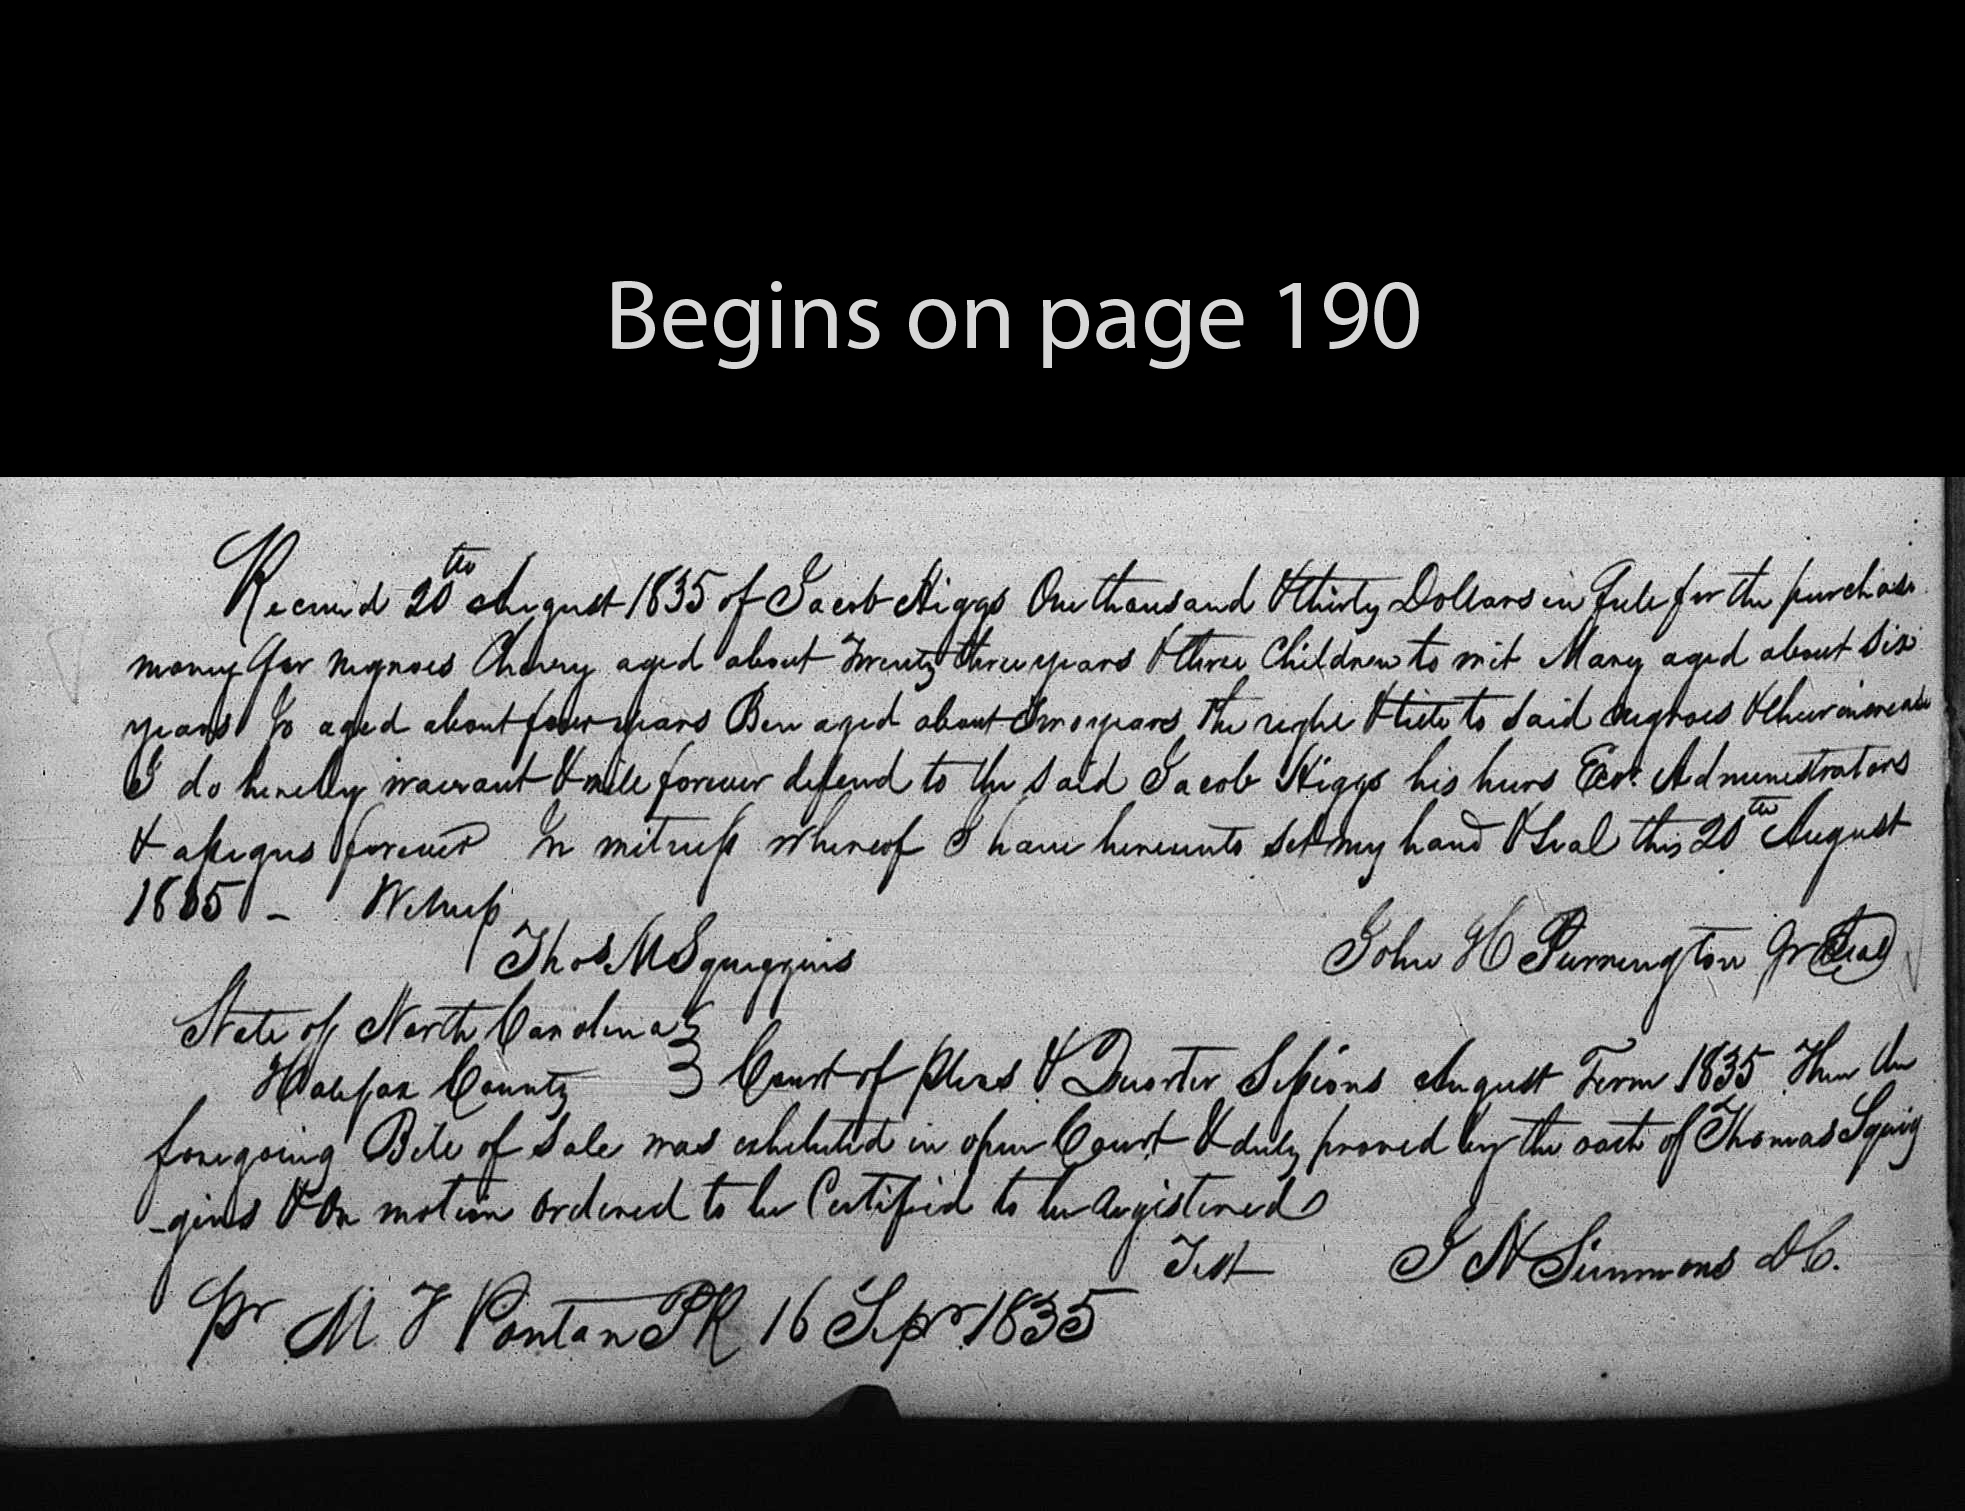 Begins on page 190
Received 20th August 1835 of Jacob Higgs One thousand & thirty Dollars in full for the purchase
money for negroes Cherry aged about Twenty three years & three Children to wit Mary aged about Six
years Jo aged about four years Ben aged about Two years the right & title to said negroes & their increase
I do hereby warrant & will forever defend to the said Jacob Higgs his heirs Exr. Administrators
& assigns forever In witness whereof I have hereunto set my hand & Seal this 20th August
1835 - Witness
Thos M Squiggins John H Purrington Jr Seal
State of North Carolina
Halifax County Court of Pleas & Quarter Sessions August Term 1835 Then the
foregoing Bill of Sale was exhibited in open Court & duly proved by the oath of Thomas Squig
-gins & On motion ordered to be Certified to be registered
Test J N Simmons D.C.
Pr M F Pontan PR 16 Sepr 1835